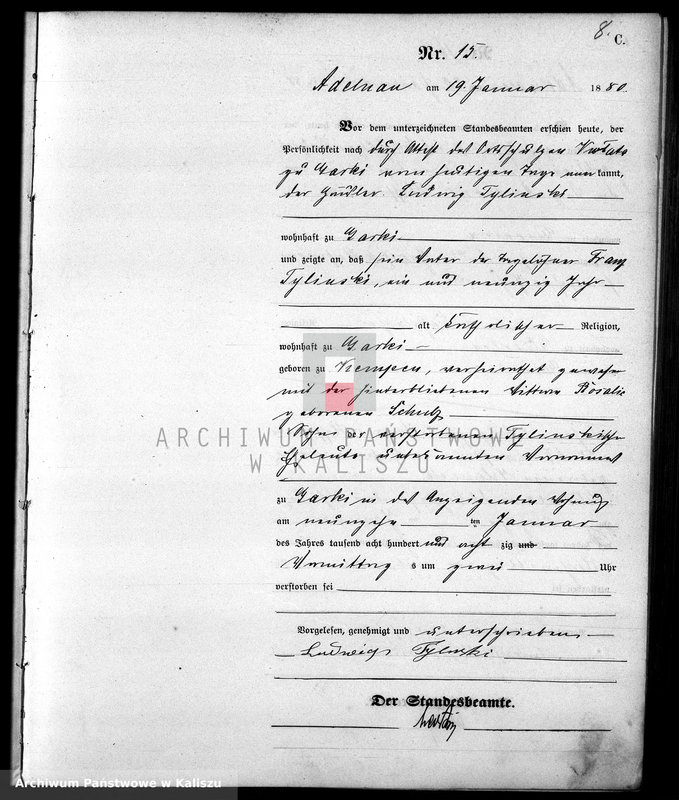 8.
C.
Nr. 15.
Adelnau am 19. Januar 1880.
Vor dem unterzeichneten Standesbeamten erschien heute, der
Persönlichkeit nach durch Attest des Ortsschulzen
zu Garki vom heutigen Tage kannt,
der Häusler Ludwig Tylinski
wohnhaft zu Garki
und zeigte an, daß sein Vater der Tagelöhner Franz
Tylinski, ein und neunzig Jahr
alt katholischer Religion,
wohnhaft zu Garki
geboren zu Kempen, verheirathet gewesen
mit der hinterbliebenen Wittwe Rosalie
geborenen Schulz
Sohn der verstorbenen Tylinskischen
Eheleute unbekannten Vornamens
zu Garki in des Anzeigenden Wohnung
am neunzehn ten Januar
des Jahres tausend acht hundert und acht zig und
Vormittag s um zwei Uhr
verstorben sei
Vorgelesen, genehmigt und unterschrieben
Ludwig Tylinski
Der Standesbeamte.
ARCHIWUM PAŃSTWOWE
W KALISZU
Archiwum Państwowe w Kaliszu